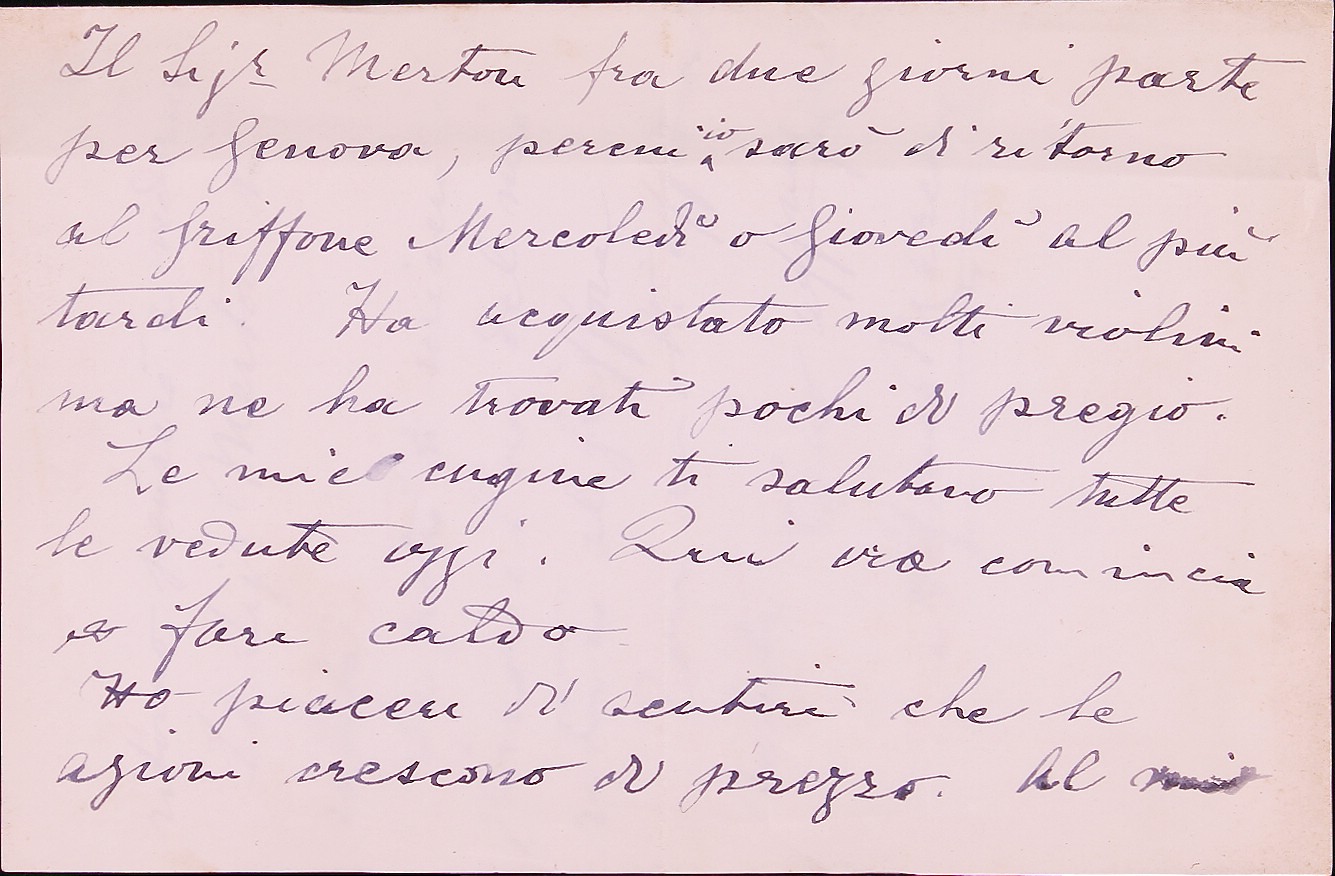 Il Sigr Merton fra due giorni parte
per Genova, percui io sarò di ritorno
al Griffone Mercoledì o Giovedì al più
tardi. Ha acquistato molti violini
ma ne ha trovati pochi di pregio.
Le mie cugine ti salutano tutte
le vedute oggi. Qui ora comincia
a fare caldo
Ho piacere di sentire che le
azioni crescono di prezzo. Al